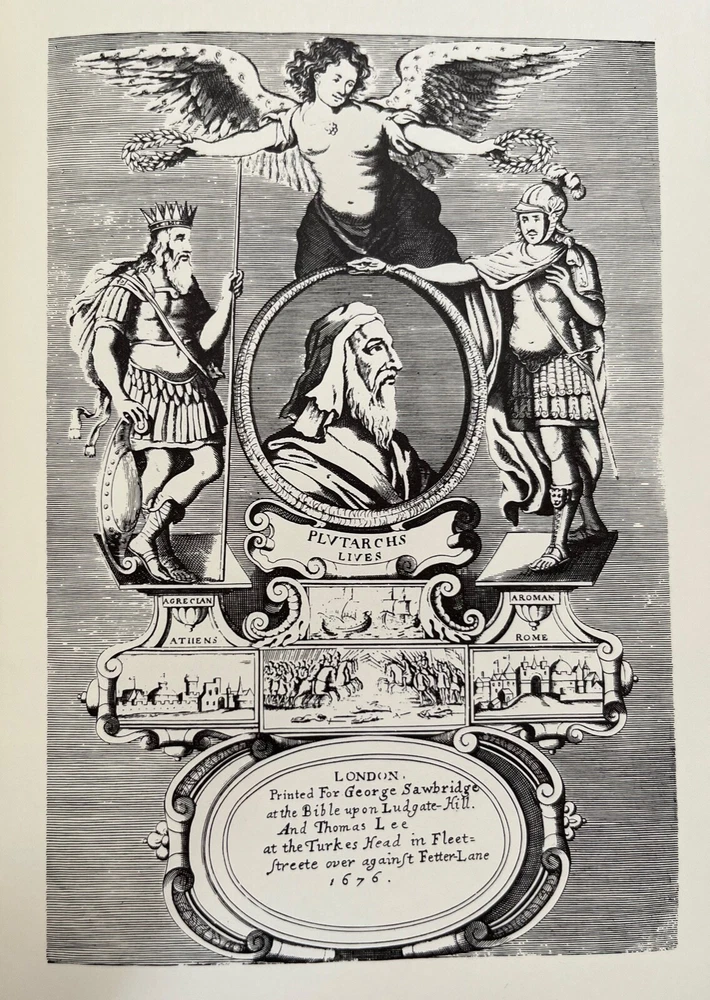 PLVTARCHS
LIVES
AGRECIAN
ATHENS
AROMAN
ROME
LONDON,
Printed For George Sawbridge
at the Bible upon Ludgate-Hill.
And Thomas Lee
at the Turkes Head in Fleet=
ſtreete over againſt Fetter-Lane
1676.